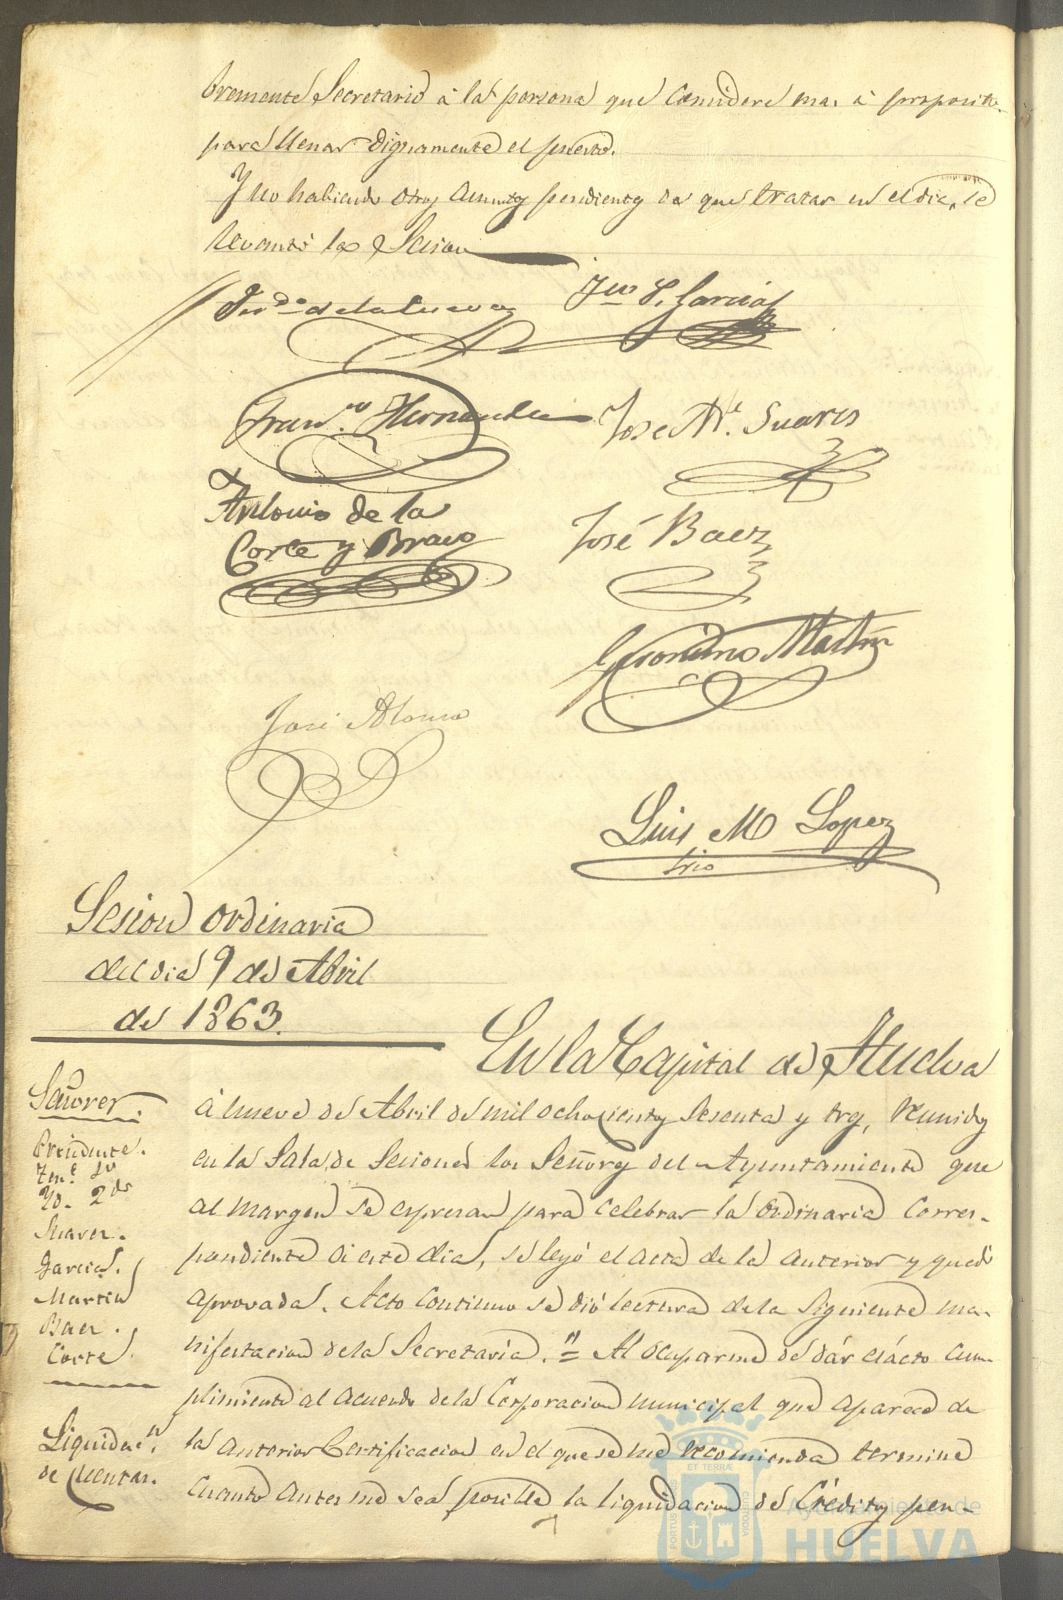 bremente Secretario á la persona que considere mas á proposito
para llenar dignamente el puesto.
Y no habiendo otros asuntos pendientes de que tratar en el dia, se
levantó la Sesion
Fer.do de la Cueva
Jn. P. Garcia
Fran.co Hernandez
José M.ª Suarez
Antonio de la
Corte y Bravo
José Baez
Geronimo Martin
José Alonso
Luis M Lopez
Srio
Sesion ordinaria
del dia 9 de Abril
de 1863.
En la Capital de Huelva
Señores.
Presidente.
Ten.e 1º
Yd. 2do
Suarez.
Garcia.
Martin
Baez.
Corte.
á nueve de Abril de mil ochocientos sesenta y tres, reunidos
en la Sala de Sesiones los Señores del Ayuntamiento que
al margen se espresan para celebrar la ordinaria corres-
pondiente á este dia, se leyó el acta de la anterior y quedó
aprovada. Acto continuo se dió lectura de la siguiente ma-
nifestacion de la Secretaría. "= Al ocuparme de dár cláto cum-
plimiento al acuerdo de la Corporacion municipal que aparece de
la anterior Certificacion en el que se me recomienda termine
cuanto antes me sea posible la liquidacion de Créditos pen-
Liquidac.n
de Cuentas.
ET TERRÆ
PORTUS
CUSTODIA
Ayuntamiento de
HUELVA